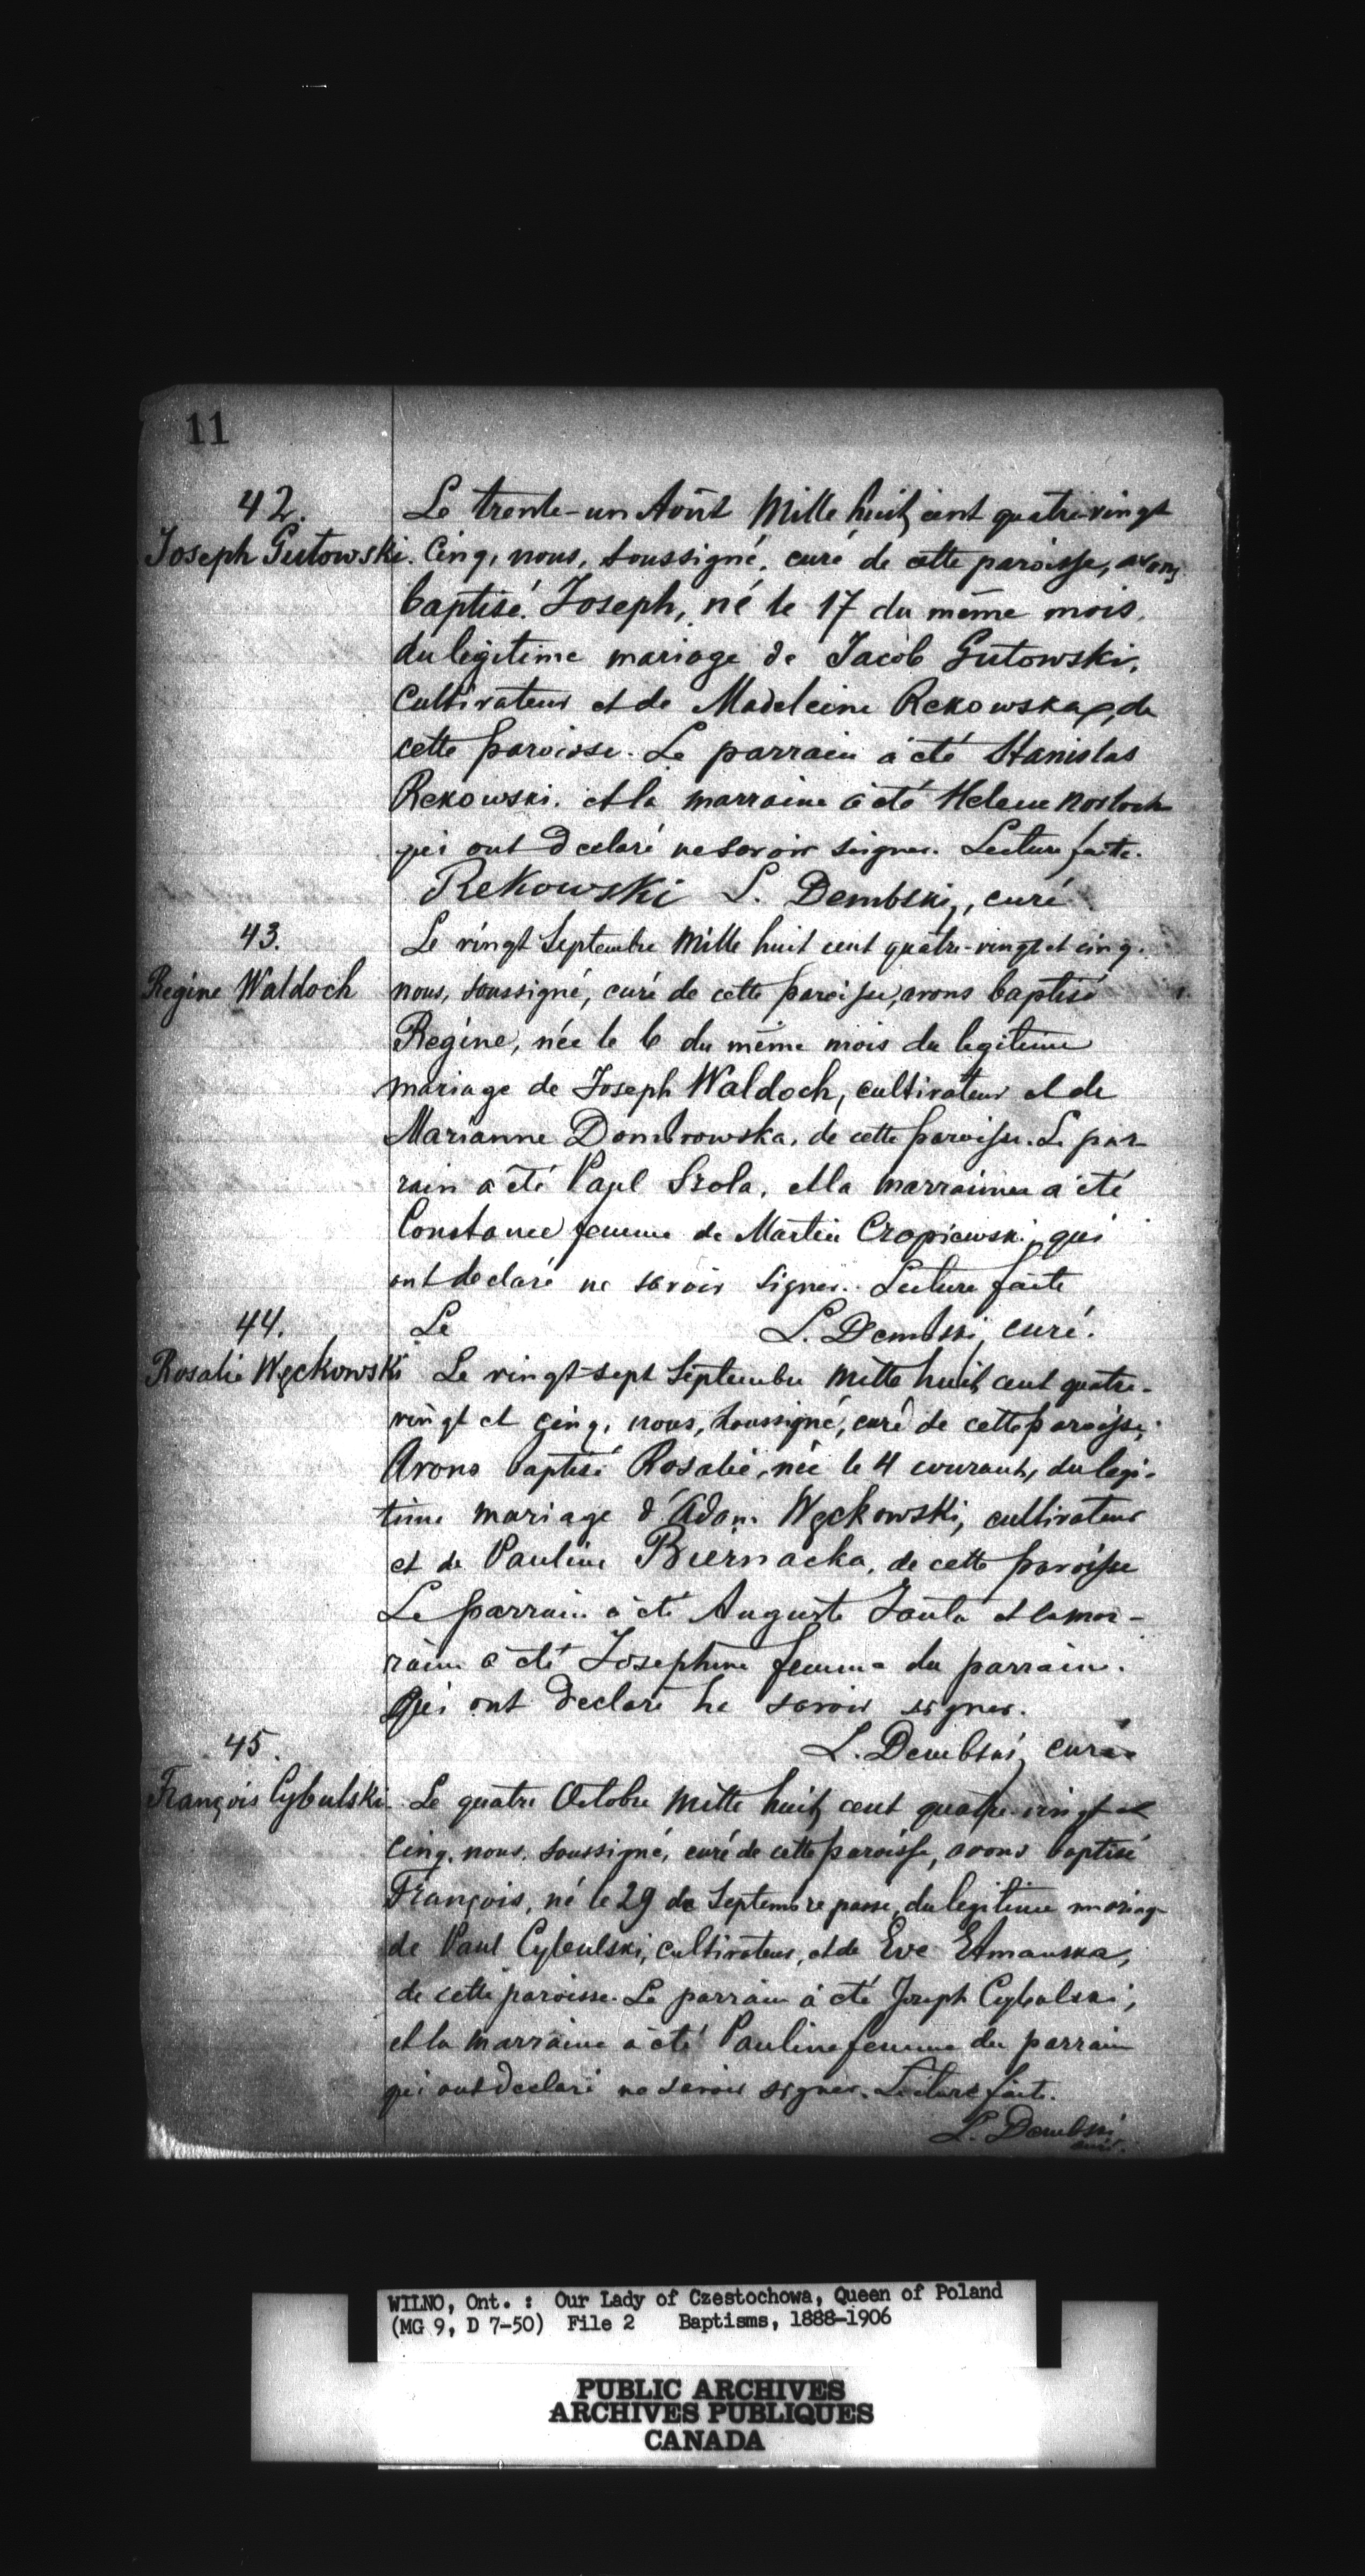 11
42.
Joseph Gutowski.
Le trente-un Août Mille huit cent quatre-vingt
Cinq, nous, soussigné, curé de cette paroisse, avons
baptisé Joseph, né le 17 du même mois,
du legitime mariage de Jacob Gutowski,
Cultivateur et de Madeleine Rekowska, de
cette paroisse. Le parrain a été Stanislas
Rekowski. et la marraine a été Helene
qui ont declaré ne savoir signer. Lecture faite.
Rekowski L. Dembski, curé
43.
Regine Waldoch
Le vingt Septembre Mille huit cent quatre-vingt et cinq.
nous, soussigné, curé de cette paroisse, avons baptisé
Regine, née le 6 du même mois du legitime
mariage de Joseph Waldoch, cultivateur et de
Marianne Dombrowska, de cette paroisse. Le par-
rain a été Paul Szola, et la marraine a été
Constance femme de Martin Cropiewski, qui
ont declaré ne savoir signer. Lecture faite
Le L. Dembski, curé.
44.
Rosalie Węckowski
Le vingt-sept Septembre Mille huit cent quatre-
vingt et cinq, nous, soussigné, curé de cette paroisse,
Avons baptisé Rosalie, née le 4 courant, du legi-
time mariage d'Adam Węckowski, cultivateur
et de Pauline Biernacka, de cette paroisse
Le parrain a été Auguste et la mar-
raine a été Josephine femme du parrain.
Qui ont declaré ne savoir signer.
L. Dembski, curé
45.
François Cybulski
Le quatre Octobre Mille huit cent quatre vingt et
Cinq, nous, soussigné, curé de cette paroisse, avons baptisé
François, né le 29 de Septembre passé, du legitime mariage
de Paul Cybulski, cultivateur, et de Eve Etmanska,
de cette paroisse. Le parrain a été Joseph Cybulski,
et la marraine a été Pauline femme du parrain
qui ont declaré ne savoir signer. Lecture faite.
L. Dembski
curé.
WILNO, Ont. : Our Lady of Czestochowa, Queen of Poland
(MG 9, D 7-50) File 2 Baptisms, 1888-1906
PUBLIC ARCHIVES
ARCHIVES PUBLIQUES
CANADA